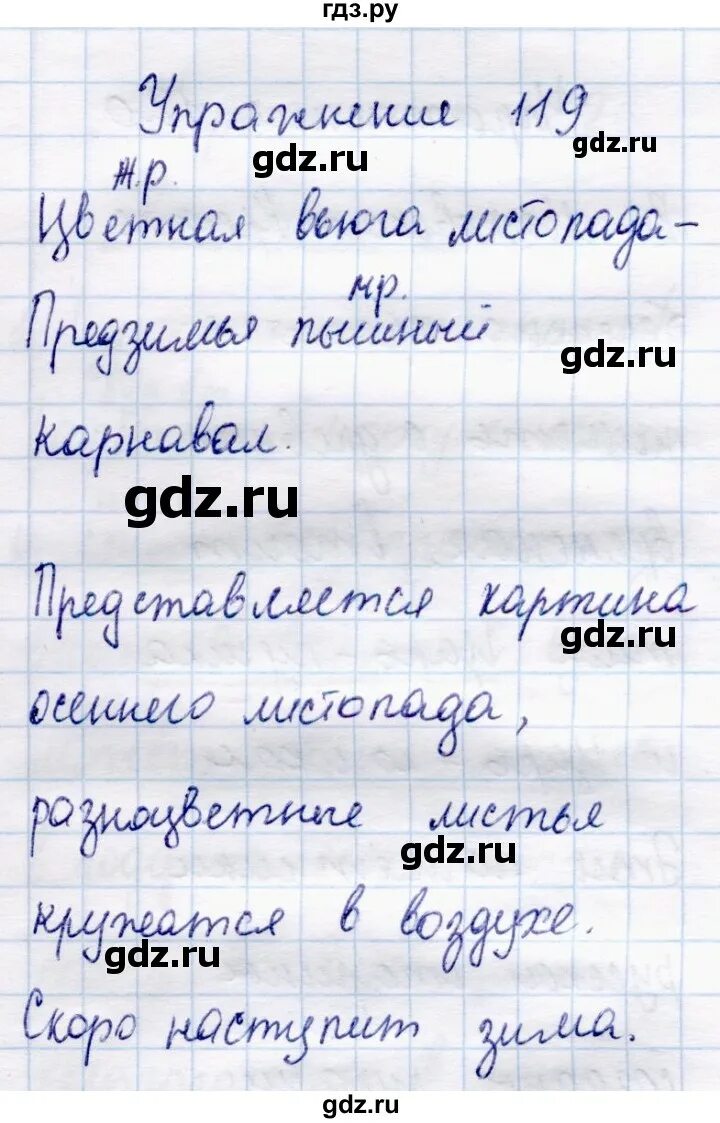 гдз.ру
Упражнение 119
gdz.ru
gdz.ru
ж.р.
Цветная вьюга листопада-
м.р.
Предзимья пышный
gdz.ru
карнавал.
gdz.ru
Представляется картина
gdz.ru
осеннего листопада,
разноцветные листья
gdz.ru
кружатся в воздухе.
gdz.ru
Скоро наступит зима.
gdz.ru